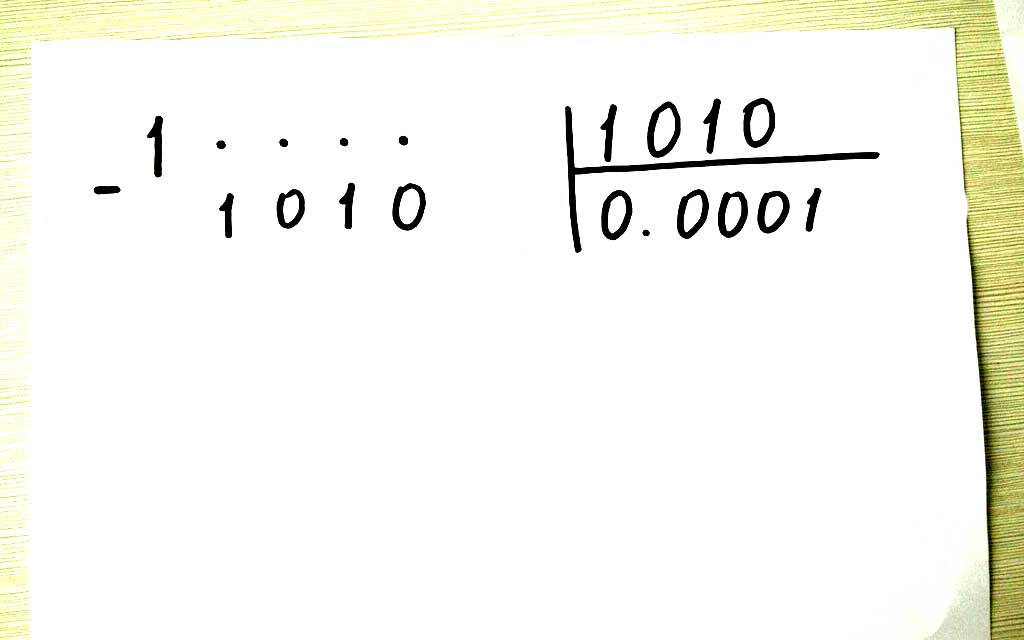 1 . . . . 1010
- 1010 0.0001